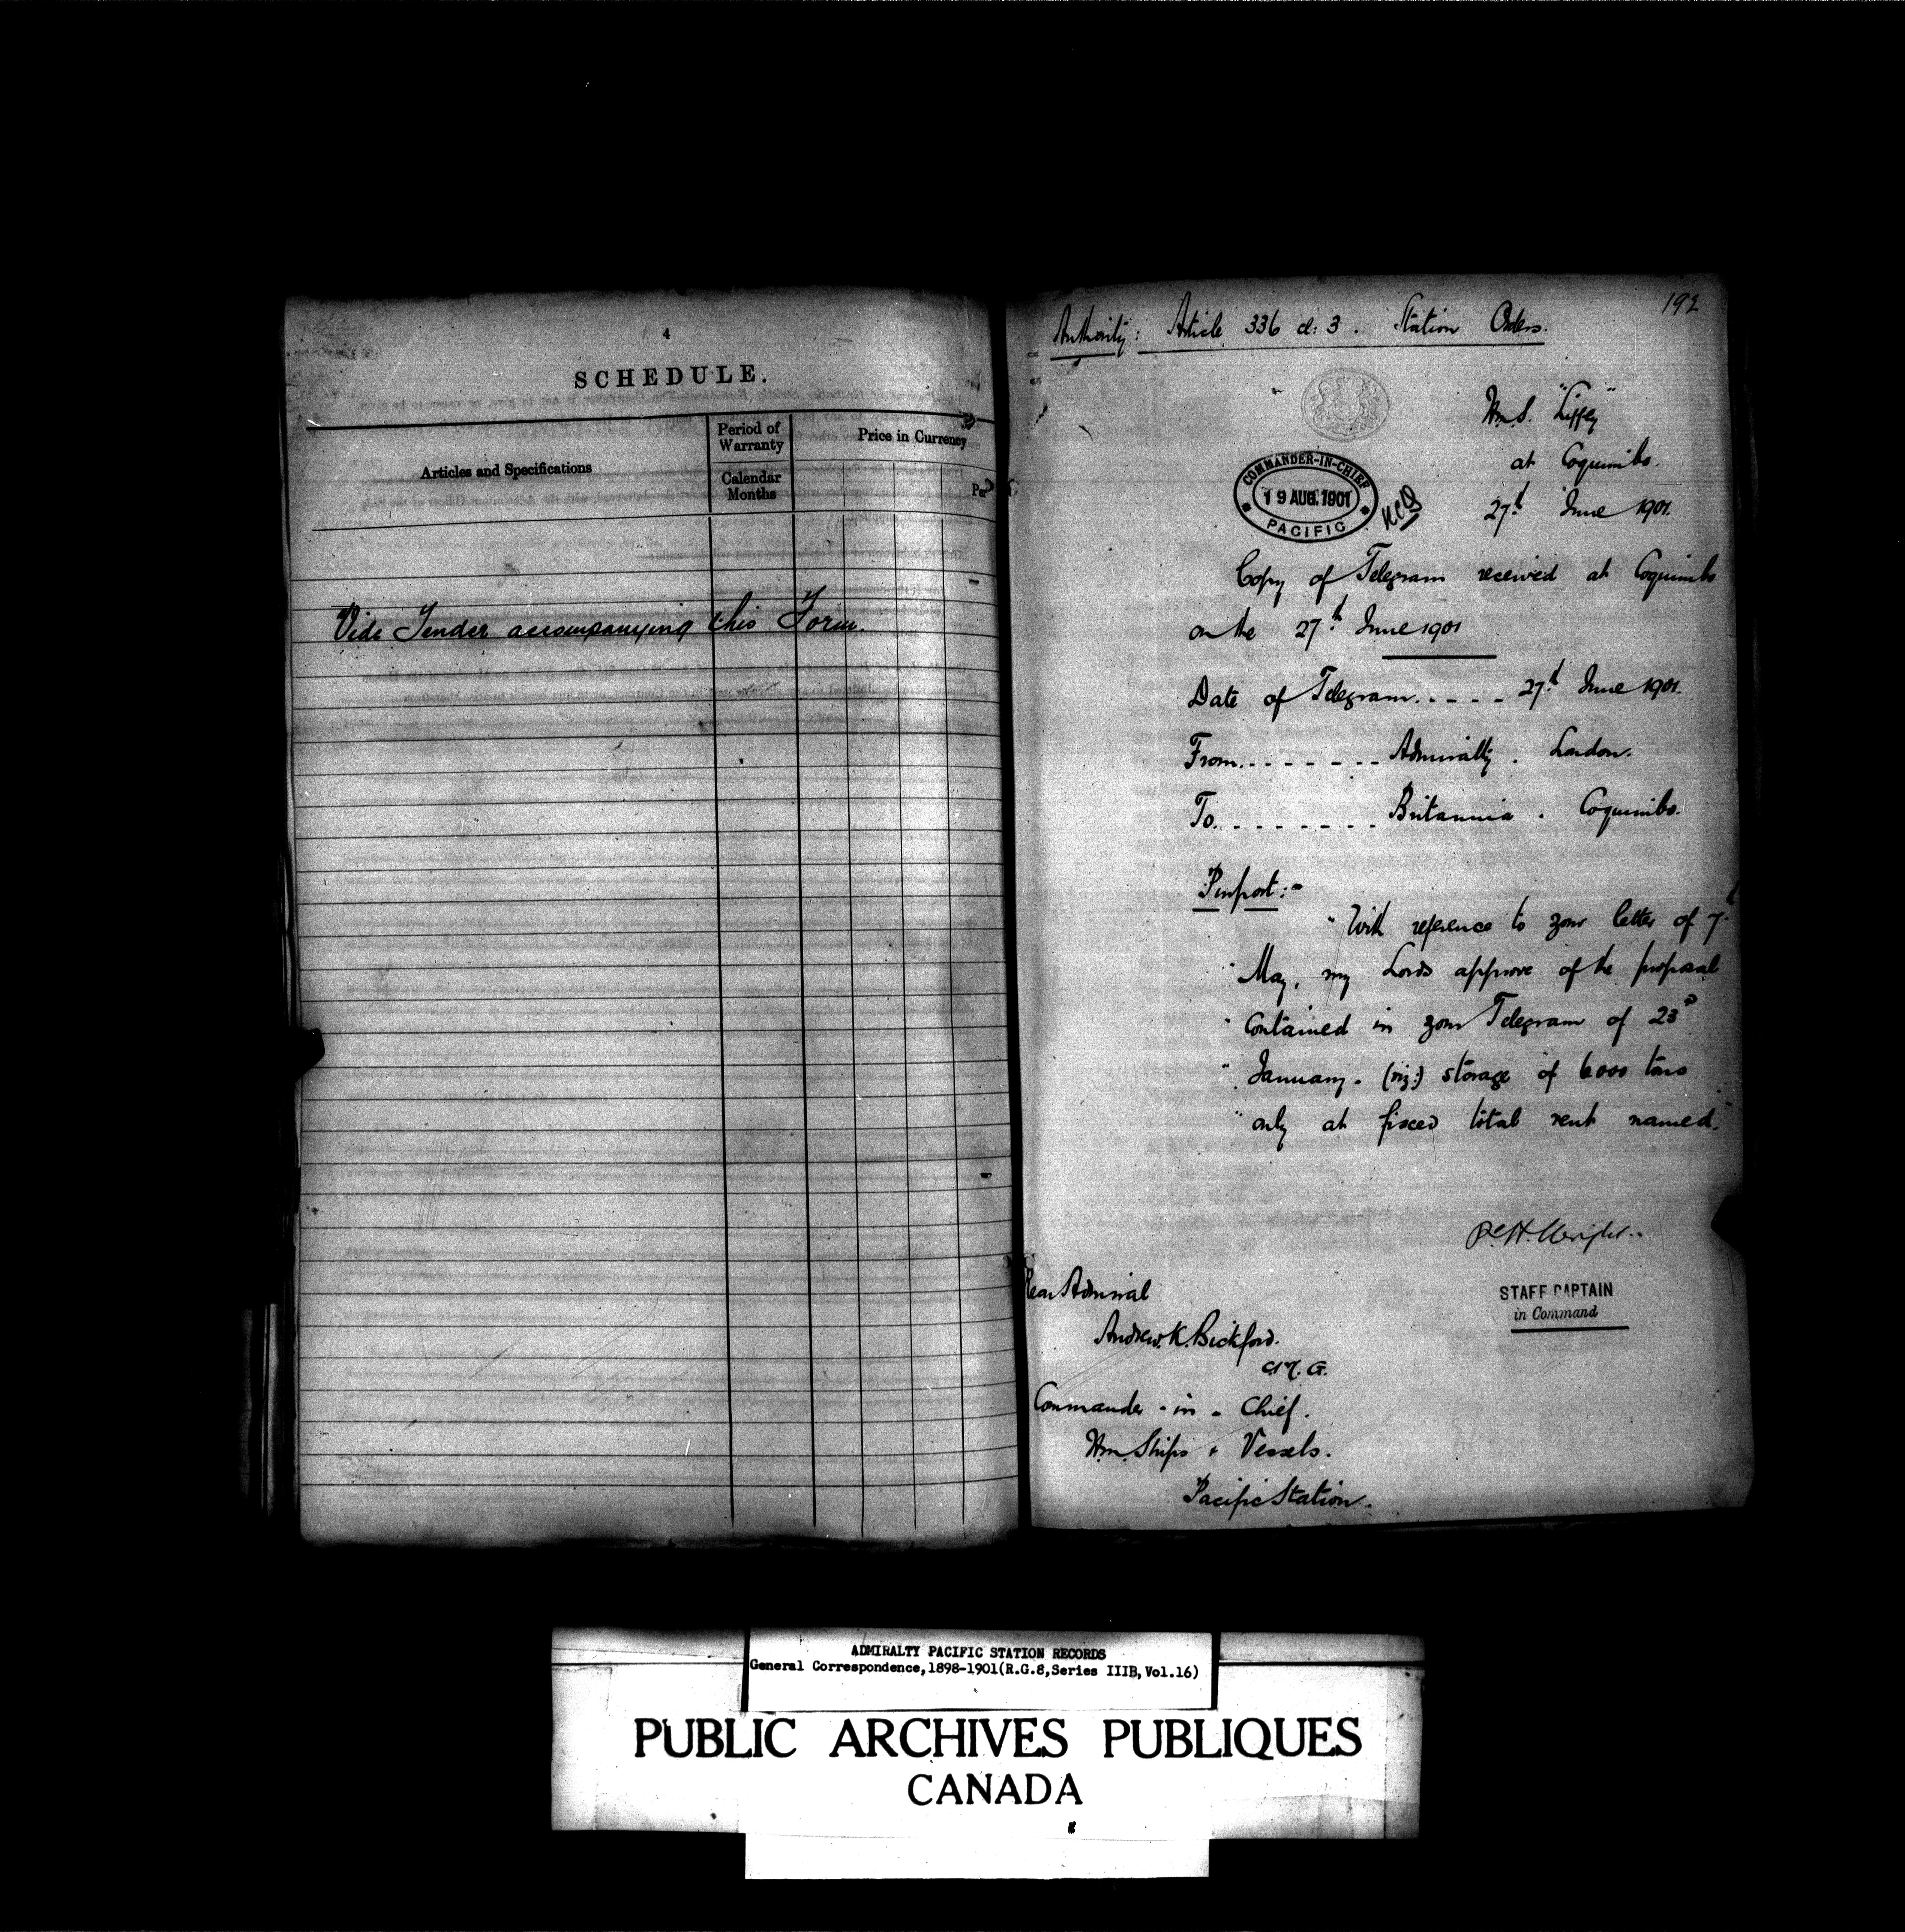 4
SCHEDULE.
Articles and Specifications
Period of
Warranty
Calendar
Months
Price in Currency
Per
Vide Tender accompanying this Form.
192
Authority: Article 336 cl: 3. Station Orders.
H.M.S. "Liffey"
at Coquimbo.
27th June 1901.
COMMANDER-IN-CHIEF
19 AUG. 1901
PACIFIC
Copy of Telegram received at Coquimbo
on the 27th June 1901
Date of Telegram..... 27th June 1901.
From........ Admiralty. London.
To......... Britannia. Coquimbo.
Purport:-
"With reference to your letter of 7th
"May, my Lords approve of the proposal
"contained in your Telegram of 23d
"January. (viz:) storage of 6000 tons
"only at fixed total rent named."
STAFF CAPTAIN
in Command
Rear Admiral
Andrew. K. Bickford.
C.M.G.
Commander-in-Chief.
H.M. Ships & Vessels.
Pacific Station.
ADMIRALTY PACIFIC STATION RECORDS
General Correspondence,1898-1901(R.G.8,Series IIIB,Vol.16)
PUBLIC ARCHIVES PUBLIQUES
CANADA